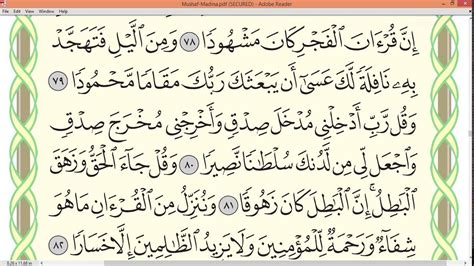 Mushaf-Madina.pdf (SECURED) - Adobe Reader
إِنَّ قُرْءَانَ ٱلْفَجْرِ كَانَ مَشْهُودًا ٧٨ وَمِنَ ٱلَّيْلِ فَتَهَجَّدْ
بِهِۦ نَافِلَةً لَّكَ عَسَىٰٓ أَن يَبْعَثَكَ رَبُّكَ مَقَامًا مَّحْمُودًا ٧٩
وَقُل رَّبِّ أَدْخِلْنِى مُدْخَلَ صِدْقٍ وَأَخْرِجْنِى مُخْرَجَ صِدْقٍ
وَٱجْعَل لِّى مِن لَّدُنكَ سُلْطَٰنًا نَّصِيرًا ٨٠ وَقُلْ جَآءَ ٱلْحَقُّ وَزَهَقَ
ٱلْبَٰطِلُ إِنَّ ٱلْبَٰطِلَ كَانَ زَهُوقًا ٨١ وَنُنَزِّلُ مِنَ ٱلْقُرْءَانِ مَا هُوَ
شِفَآءٌ وَرَحْمَةٌ لِّلْمُؤْمِنِينَ وَلَا يَزِيدُ ٱلظَّٰلِمِينَ إِلَّا خَسَارًا ٨٢